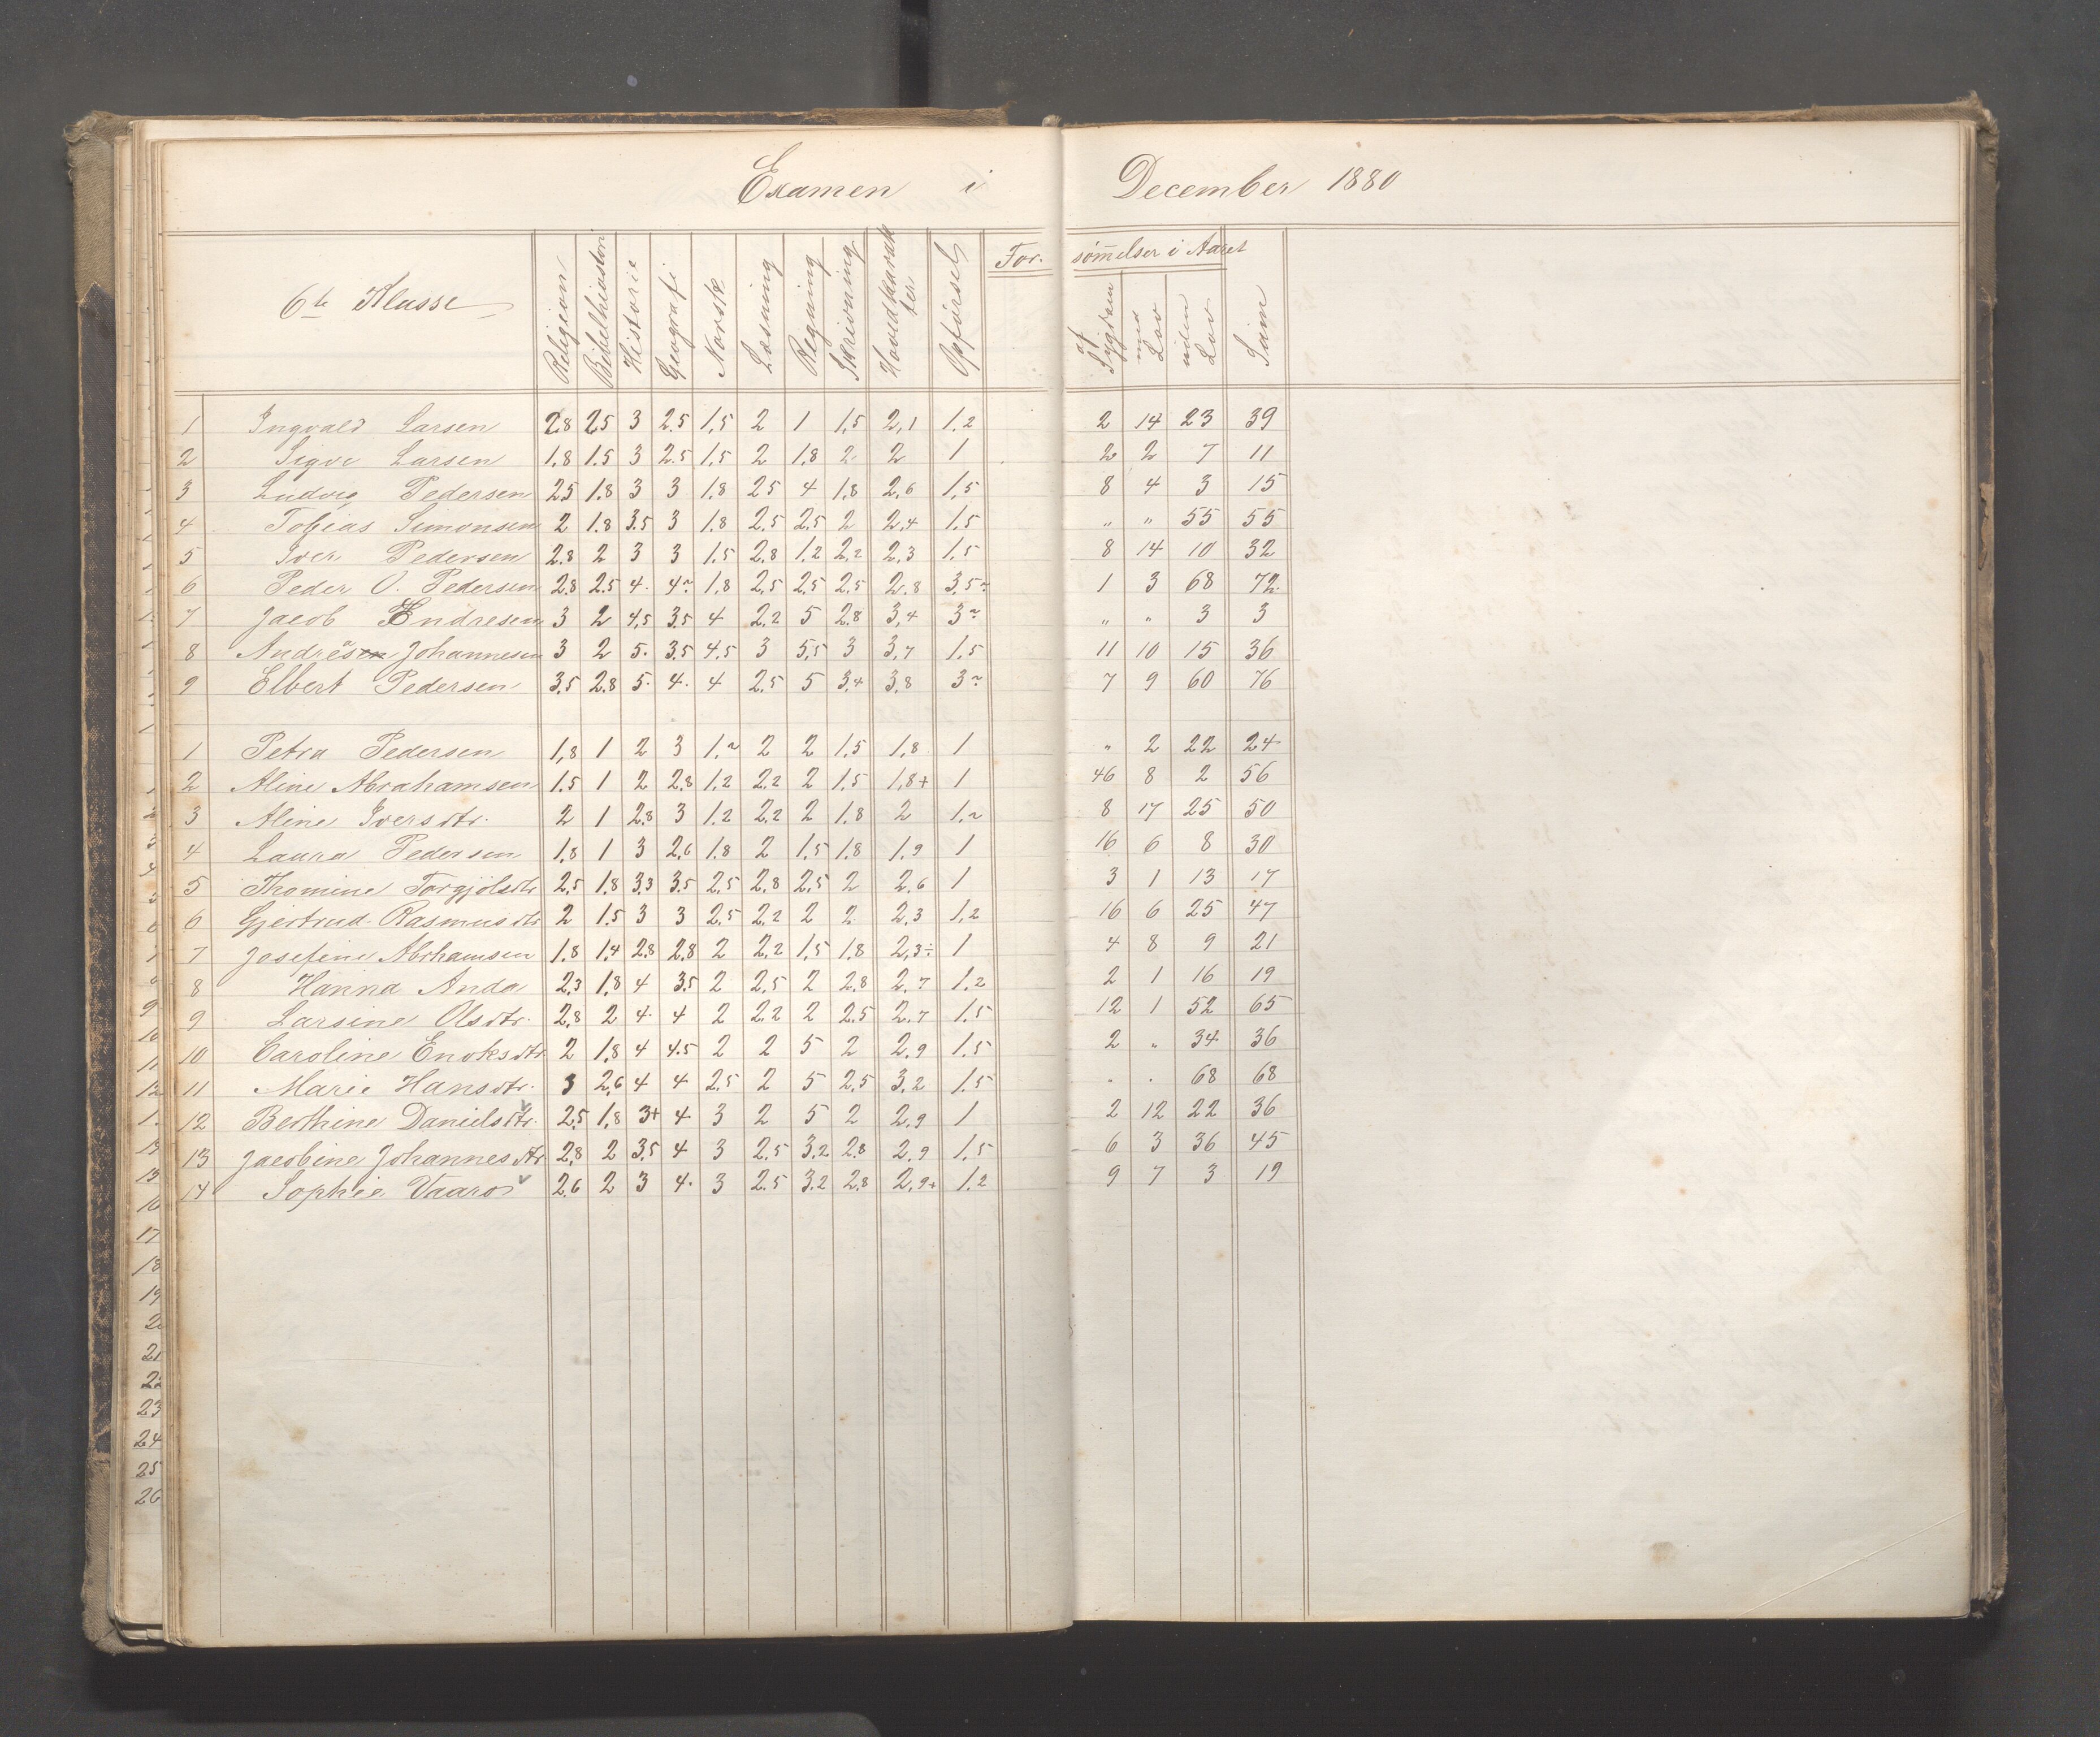 Examen i December 1880
6te Klasse Religion Bibelhistori Historie Geografi Norsk Læsning Regning Skrivning Hovedkarakter Opførsel Forsømmelser i Aaret af Sygdom med Lov uden Lov Sum
1 Ingvald Larsen 2.8 2.5 3 2.5 1,5 2 1 1,5 2,1 1.2 2 14 23 39
2 Sigve Larsen 1.8 1.5 3 2.5 1,5 2 1.8 2 2 1 2 2 7 11
3 Ludvig Pedersen 2.5 1.8 3 3 1,8 2.5 4 1,8 2,6 1,5 8 4 3 15
4 Tobias Simonsen 2 1.8 3.5 3 1.8 2.5 2.5 2 2,4 1.5 " " 55 55
5 Iver Pedersen 2.8 2 3 3 1.5 2.8 1.2 2,2 2,3 1.5 8 14 10 32
6 Peder O. Pedersen 2.8 2.5 4. 4~ 1,8 2,5 2,5 2,5 2.8 3,5~ 1 3 68 72
7 Jacob Endresen 3 2 4,5 3.5 4 2,2 5 2.8 3,4 3~ " " 3 3
8 Andreas Johannesen 3 2 5. 3.5 4,5 3 5,5 3 3,7 1.5 11 10 15 36
9 Elbert Pedersen 3.5 2.8 5. 4. 4 2,5 5 3,4 3,8 3~ 7 9 60 76
1 Petra Pedersen 1,8 1 2 3 1.~ 2 2 1.5 1,8 1 " 2 22 24
2 Aline Abrahamsen 1.5 1 2 2.8 1,2 2,2 2 1,5 1,8+ 1 46 8 2 56
3 Aline Iversdtr. 2 1 2.8 3 1.2 2,2 2 1.8 2 1.~ 8 17 25 50
4 Laura Pedersen 1,8 1 3 2,6 1.8 2 1,5 1.8 1.9 1 16 6 8 30
5 Thomine Torgjølsdtr 2.5 1,8 3.3 3.5 2,5 2,8 2,5 2 2.6 1 3 1 13 17
6 Gjertrud Rasmusdtr 2 1.5 3 3 2.5 2,2 2 2 2,3 1,2 16 6 25 47
7 Josefine Abrhamsen 1.8 1,4 2.8 2,8 2 2,2 1,5 1,8 2,3÷ 1 4 8 9 21
8 Hanna Anda 2,3 1,8 4 3.5 2 2,5 2 2,8 2,7 1.2 2 1 16 19
9 Larsine Olsdtr. 2,8 2 4. 4 2 2.2 2 2.5 2.7 1.5 12 1 52 65
10 Caroline Enoksdtr 2 1,8 4 4.5 2 2 5 2 2,9 1.5 2 " 34 36
11 Marie Hansdtr. 3 2,6 4 4 2,5 2 5 2,5 3,2 1.5 . . 68 68
12 Berthine Danielsdtr. v 2,5 1,8 3+ 4 3 2 5 2 2,9 1 2 12 22 36
13 Jacobine Johannesdtr 2,8 2 3,5 4 3 2.5 3,2 2,8 2,9 1,5 6 3 36 45
14 Sophie Vaaroi v 2,6 2 3 4. 3 2.5 3,2 2,8 2,9+ 1,2 9 7 3 19
17
18
19
21
22
23
24
25
26